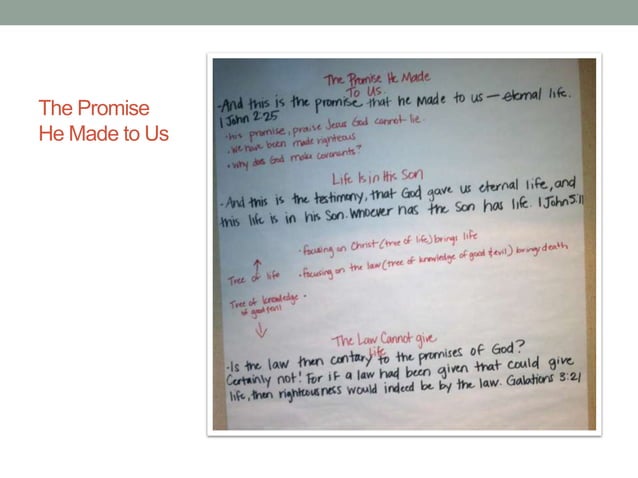 The Promise
He Made to Us
The Promise He Made
To Us.
-And this is the promise that he made to us — eternal life.
1 John 2:25
-his promise, praise Jesus God cannot lie.
-We have been made righteous
• Why does God make covenants?
Life Is in His Son
-And this is the testimony, that God gave us eternal life, and
this life is in his Son. Whoever has the Son has life. 1 John 5:11
• focusing on Christ (tree of life) brings life
Tree of life
• focusing on the law (tree of knowledge of good & evil) brings death
Tree of knowledge
of good & evil
The Law Cannot give
life
-Is the law then contary to the promises of God?
Certainly not! For if a law had been given that could give
life, then righteousness would indeed be by the law. Galations 3:21